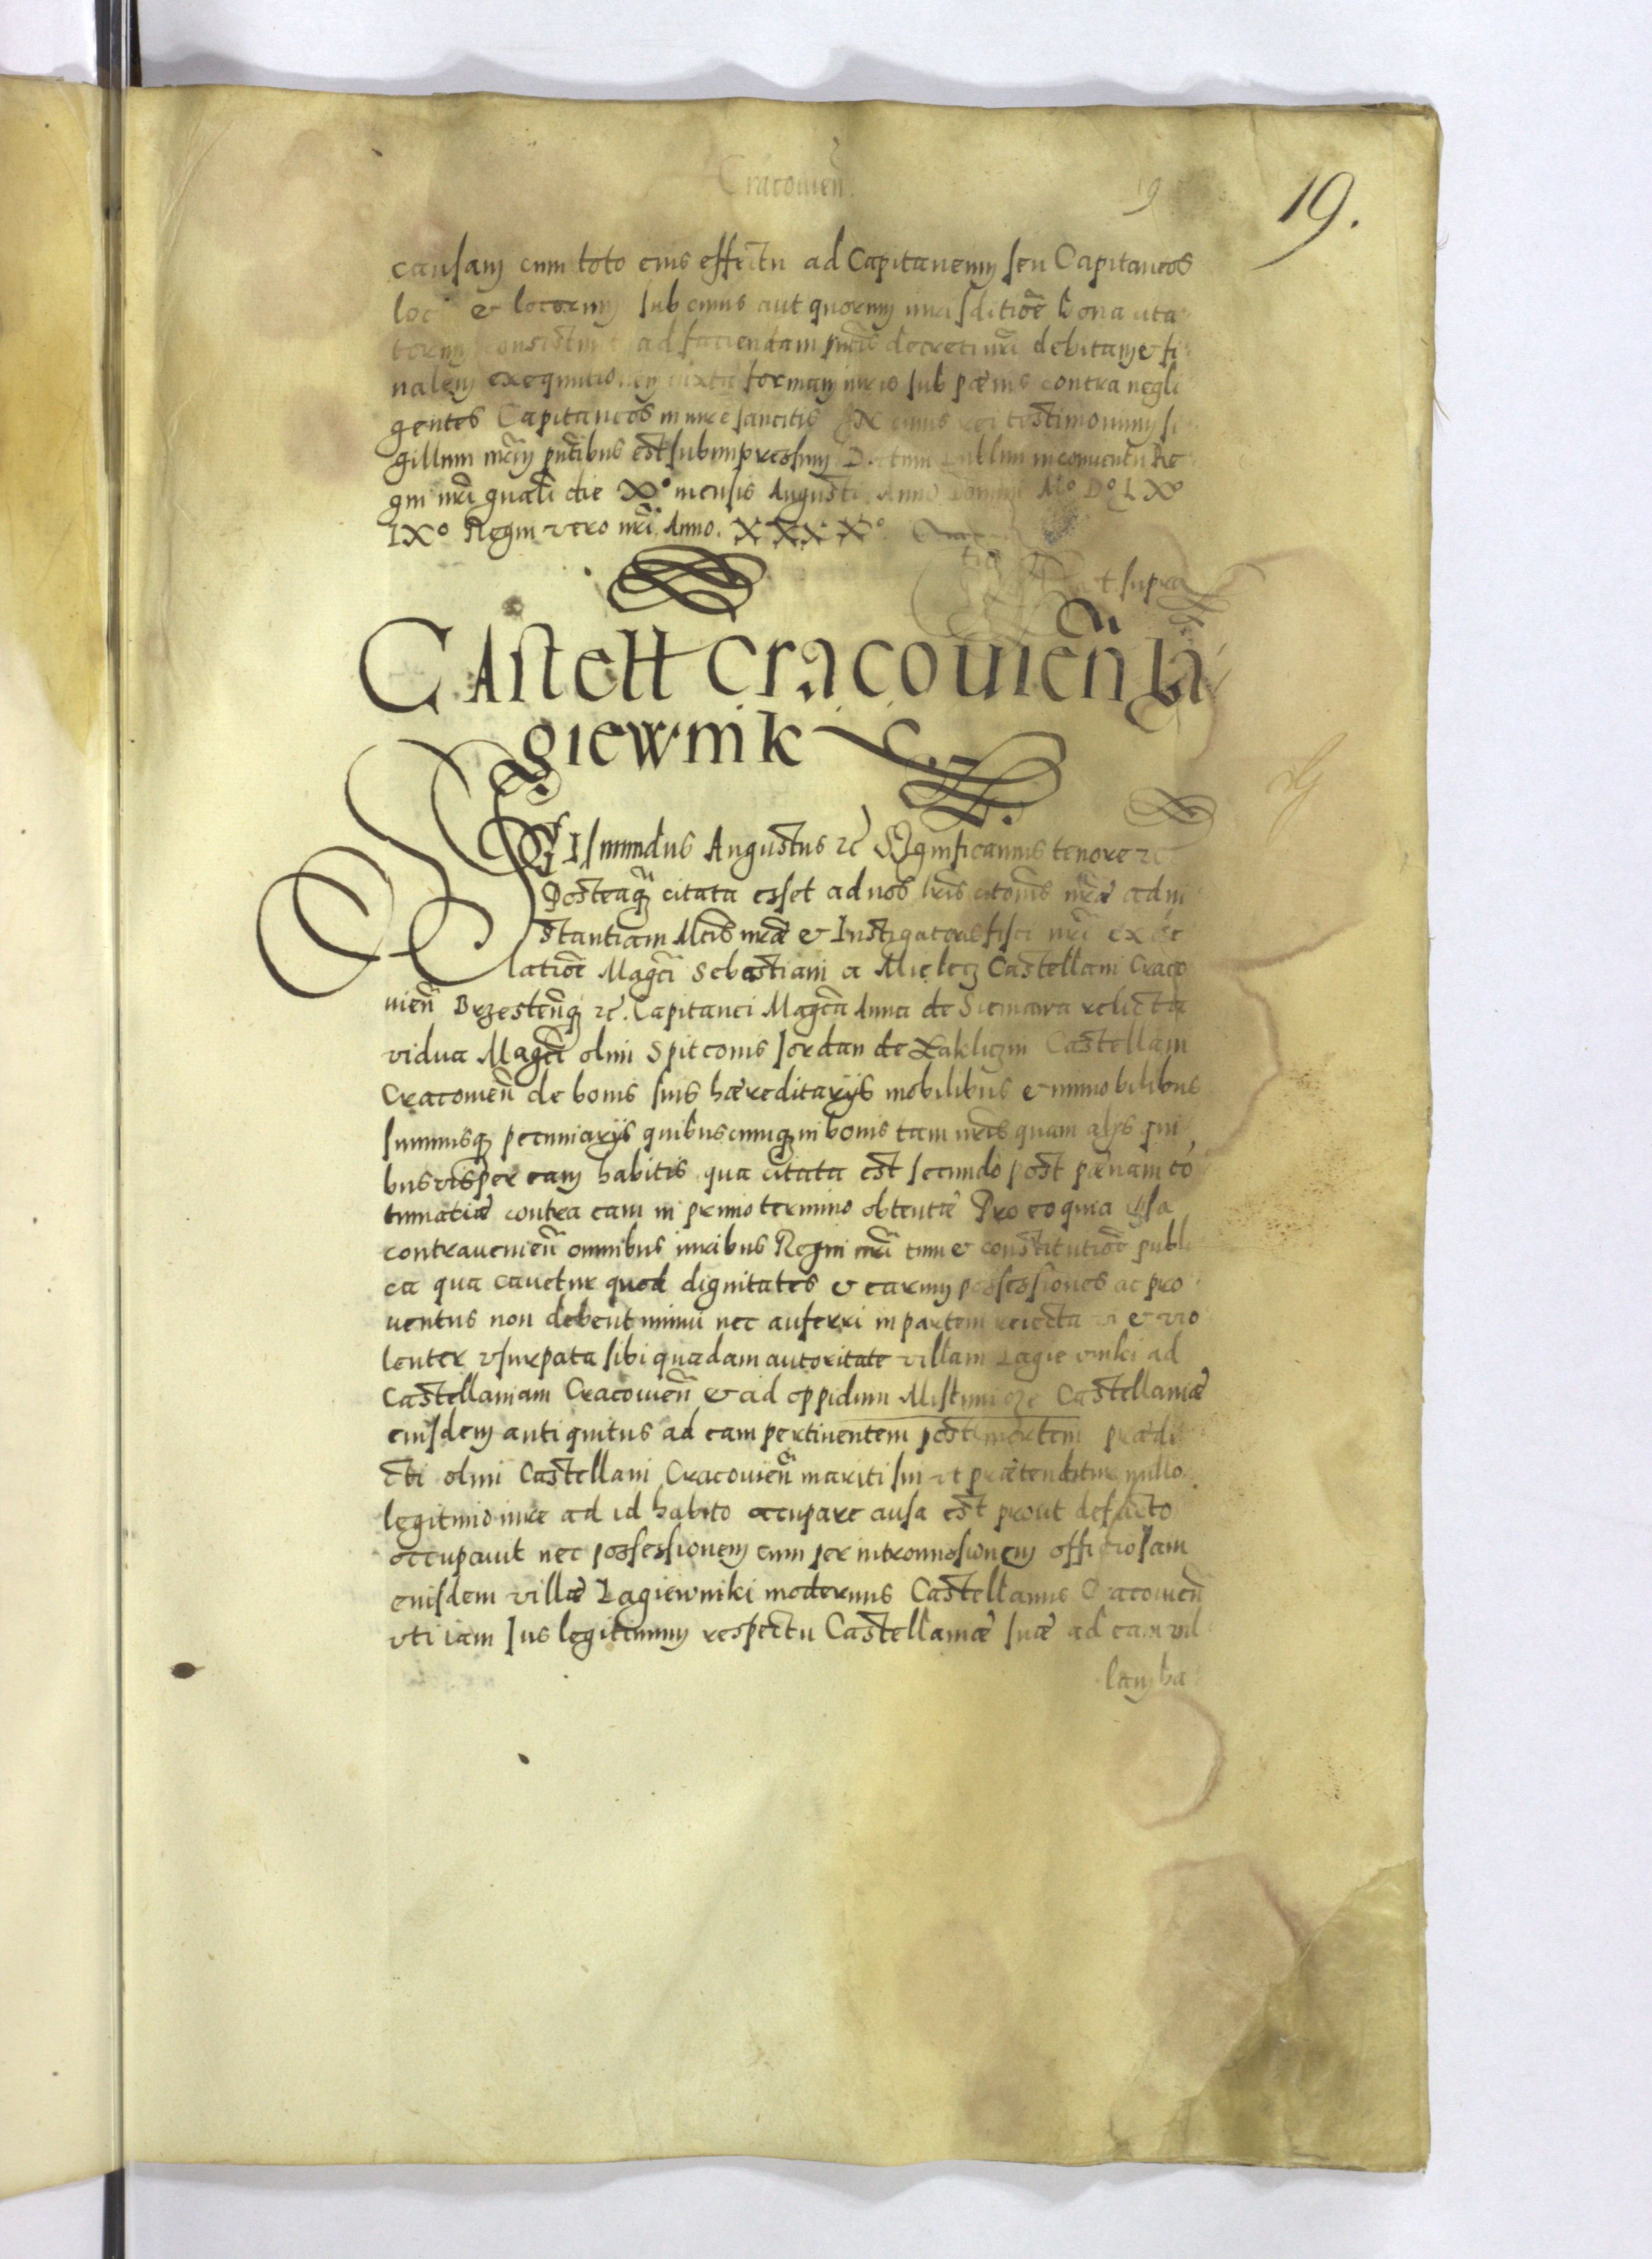 Cracouien̄.
19
19.
causam cum toto eius effectu ad Capitaneum seu Capitaneos
loci & locorum sub cuius aut quorum iurisditiōe bona cita
torum consistunt ad faciendam pn̄tis decreti nr̄i debitam & fi
nalem exequutionem iuxta formam iuris sub pænis contra negli
gentes Capitaneos in iure sancitis In cuius rei testimonium si
gillum nr̄m pn̄tibus est subimpressum Datum Lublini in conuentu Re
gni nr̄i gn̄ali die Xº mensis Augusti Anno Domini Mº Dº LXº
IXº Regni vero nr̄i Anno. XXXXº
ut supra
CAstell Cracouien̄ Ła
giewnik
SIgIsmundus Augustus zc̄ Significamus tenore zc̄
Posteaq̃ȝ citata esset ad nos lr̄is citōnis nr̄æ ad in
stantiam Mtis nr̄æ & Instigatoris fisci nr̄i ex de
latiōe Magc̄i Sebastiani a Mielecz Castellani Craco
uien̄ Brzestēnq̃ȝ zc̄. Capitanei Magc̄a Anna de Sieniawa relicta
vidua Magc̄i olim Spitconis Jordan de Zakliczin Castellani
Cracouien̄ de bonis suis hæreditarijs mobilibus & immobilibus
summisqȝ pecuniarijs quibuscumqȝ in bonis tam nr̄is quam alijs qui
busvis per eam habitis qua citata est secundo post pænam cō
tumatiæ contra eam in primo termino obtentæ Pro eo quia ipsa
contraueniēn omnibus iuribus Regni nr̄i tum & constitutiōe publi
ca qua cauetur quod dignitates & earum possessiones ac pro
uentus non debent minui nec auferri in partem reiecta vi & vio
lenter vsurpata sibi quadam autoritate villam Lagiewniki ad
Castellaniam Cracouien̄ & ad oppidum Mistrzuioze Castellaniæ
eiusdem antiquitus ad eam pertinentem post mortem prædi
cti olim Castellani Cracouien̄ mariti sui vt prætenditur nullo
legitimo iure ad id habito occupare ausa est prout defacto
occupauit nec possessionem eum per intromissionem officiosam
eiusdem villæ Lagiewniki modernus Castellanus Cracouien̄
vti iam Jus legitimum respectu Castellaniæ suæ ad eam vil
lam ha